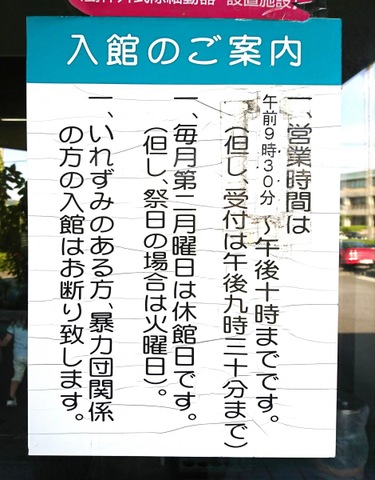 体外式除細動器 設置施設
入館のご案内
一、営業時間は
午前9時30分 ～午後十時までです。
(但し、受付は午後九時三十分まで)
一、毎月第二月曜日は休館日です。
(但し、祭日の場合は火曜日)。
一、いれずみのある方、暴力団関係
の方の入館はお断り致します。